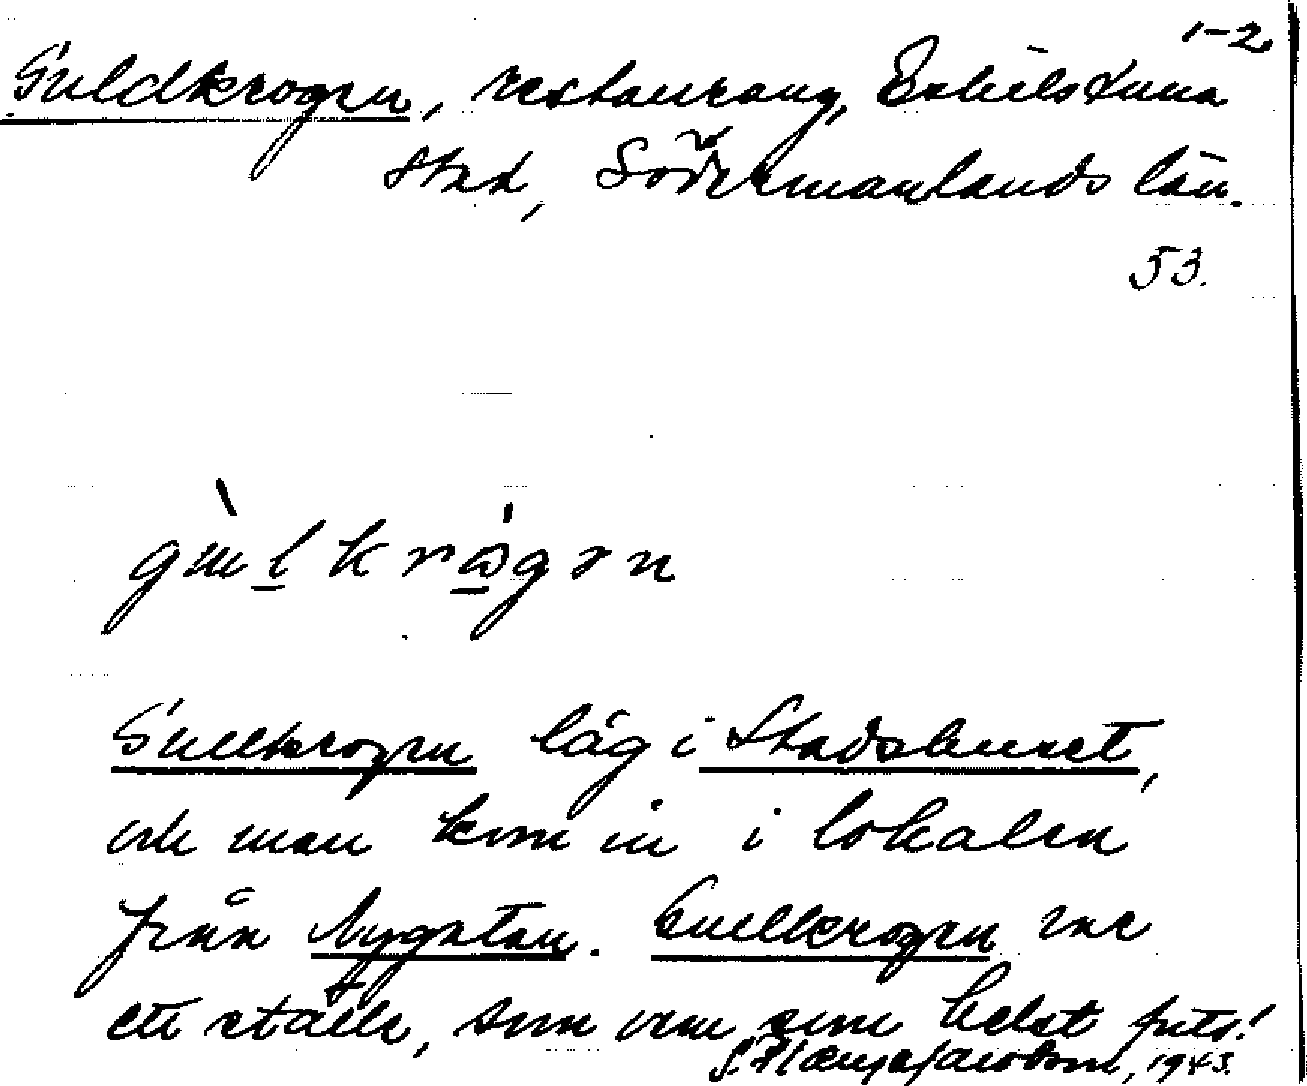 1-2
Guldkrogen, restaurang, Eskilstuna
stad, Södermanlands län.
53.
Gullkrogen låg i Stadshuset,
och man kom in i lokalen
från Nygatan. Gullkrogen var
ett ställe, som vem som helst
1943.